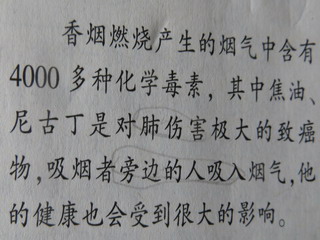 香烟燃烧产生的烟气中含有
4000 多种化学毒素，其中焦油、
尼古丁是对肺伤害极大的致癌
物，吸烟者旁边的人吸入烟气，他
的健康也会受到很大的影响。